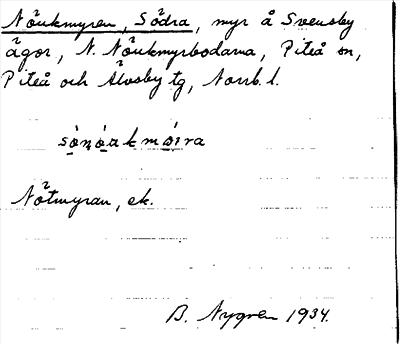 Nöukmyren, Södra, myr å Svensby
ägor, N. Nöukmyrbodarna, Piteå sn,
Piteå och Älvsby tg, Norrb. l.
sȯnȯakmȯıra
Nötmyran, ek.
B. Nygren 1934.